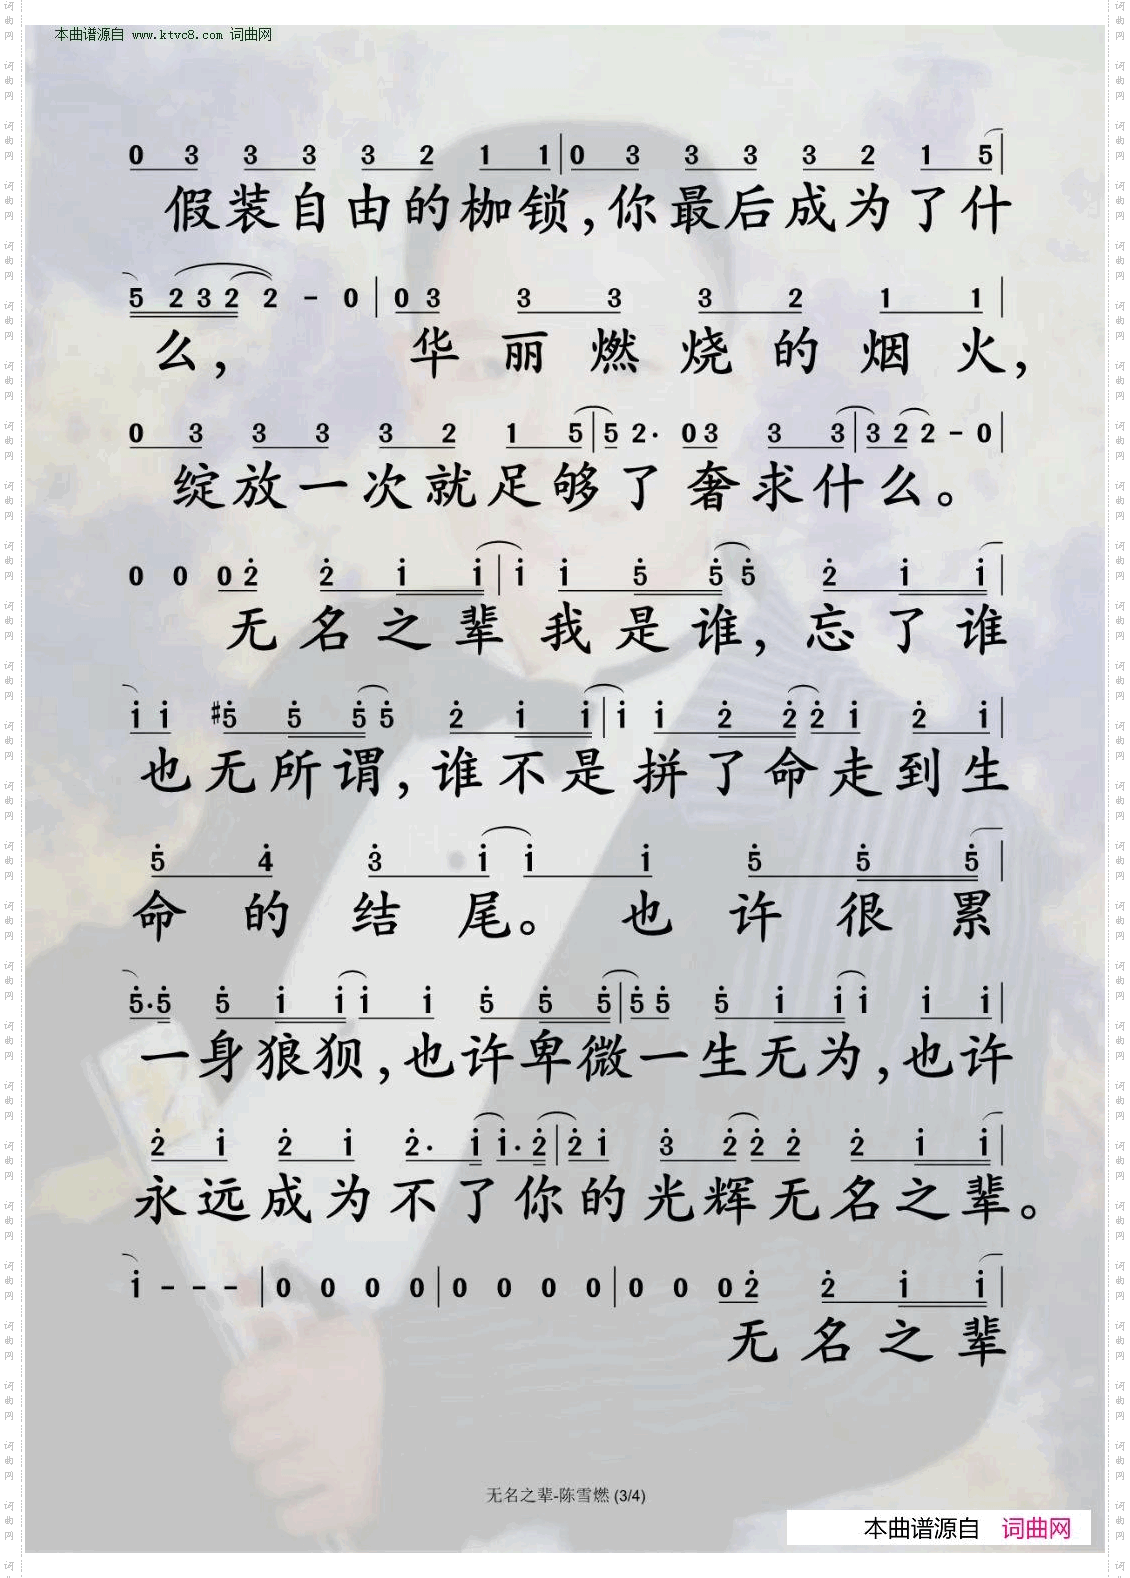 本曲谱源自 www.ktvc8.com 词曲网
0 3 3 3 3 2 1 1 | 0 3 3 3 3 2 1 5 |
假装自由的枷锁,你最后成为了什
5 2 3 2 2 - 0 | 0 3 3 3 3 2 1 1 |
么, 华丽燃烧的烟火,
0 3 3 3 3 2 1 5 | 5 2· 0 3 3 3 | 3 2 2 - 0 |
绽放一次就足够了奢求什么。
0 0 0 2 2 1 1 | 1 1 5 5 5 2 1 1 |
无名之辈 我是谁,忘了谁
1 1 #5 5 5 5 2 1 1 | 1 1 2 2 2 1 2 1 |
也无所谓,谁不是拼了命走到生
5 4 3 1 1 1 5 5 5 |
命的结尾。 也许很累
5·5 5 1 1 1 1 5 5 5 | 5 5 5 1 1 1 1 1 |
一身狼狈,也许卑微一生无为,也许
2 1 2 1 2· 1 1·2 | 2 1 3 2 2 2 2 1 1 |
永远成为不了你的光辉无名之辈。
1 - - - | 0 0 0 0 | 0 0 0 0 | 0 0 0 2 2 1 1 |
无名之辈
无名之辈-陈雪燃 (3/4)
本曲谱源自 词曲网